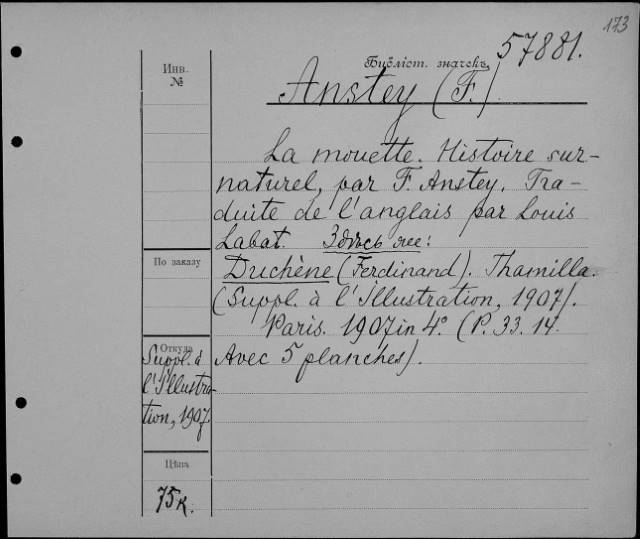 173
57881.
Инв.
№
Библіот. значекъ
Anstey (F.)
La mouette. Histoire sur-
naturel, par F. Anstey. Tra-
duite de l'anglais par Louis
Labat. Здѣсь же:
По заказу
Duchène (Ferdinand). Thamilla.
(Suppl. à l'Illustration, 1907).
Paris. 1907 in 4° (P. 33. 14.
Avec 5 planches).
Откуда
Suppl. à
l'Illustra-
tion, 1907.
Цѣна
75 к.